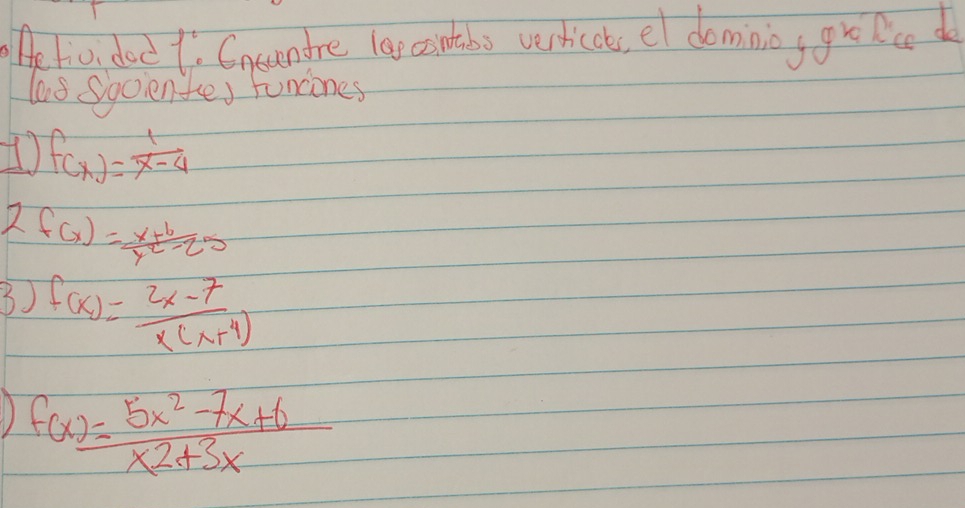 Actividad 1: Encuentre las asintabs verticales, el dominio y grafice de
las siguientes funciones
1) f(x) = 1/x-4
2 f(x) = x+6/x²-25
3) f(x) = 2x-7/x(x+4)
) f(x) = 5x²-7x+6/x2+3x